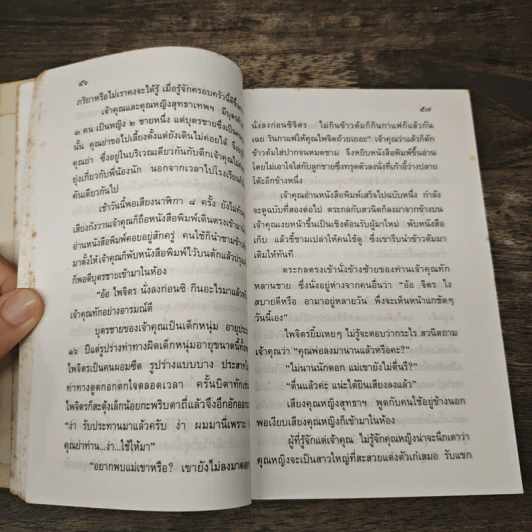 ๕๖
ภริยาหรือไม่เราคงจะได้รู้ เมื่อรู้จักครอบครัวนี้ดีขึ้น
เจ้าคุณและคุณหญิงสุทธาเทพฯ มีบุตรด้วย
๓ คน เป็นหญิง ๒ ชายหนึ่ง แต่บุตรชายซึ่งเป็น
นั้น คุณย่าขอไปเลี้ยงตั้งแต่ยังเดินไม่ค่อยได้ จึงอยู่
คุณย่า ซึ่งอยู่ในบริเวณเดียวกันกับตึกเจ้าคุณ
ยุ่งเกี่ยวกับพี่น้องนัก นอกจากเวลาไปโรงเรียน
คันเดียวกันไป
เช้าวันนี้พอเสียงนาฬิกา ๘ ครั้ง ยังไม่
เสียงกังวานเจ้าคุณก็ถือหนังสือพิมพ์เดินตรงเข้ามา
อ่านหนังสือพิมพ์คอยอยู่สักครู่ คนใช้ก็นำชามข้าว
มาตั้งให้เจ้าคุณก็พับหนังสือพิมพ์ไว้บนตักแล้ว
ก็พอดีบุตรชายเข้ามาในห้อง
“อ้อ ไพจิตร นั่งลงก่อนซิ กินอะไรมาแล้ว
เจ้าคุณทักอย่างอารมณ์ดี
บุตรชายของเจ้าคุณเป็นเด็กหนุ่ม อายุ
๑๖ ปีแต่รูปร่างท่าทางผิดเด็กหนุ่มอายุขนาดนี้
ไพจิตรเป็นคนผอมซีด รูปร่างแบบบาง
ท่าทางดูตกอกตกใจตลอดเวลา ครั้นบิดาทัก
ไพจิตรก็สะดุ้งเล็กน้อยกะพริบตาถี่แล้วจึงอึกอัก
“ง่า รับประทานมาแล้วครับ ง่า ผมมานี่เพราะ
คุณย่าท่าน...ง่า...ใช้ให้มา”
“อยากพบแม่เขาหรือ? เขายังไม่ลงมาดอก
๕๗
นั่งลงก่อนซิจิตร ไม่กินข้าวต้มก็กินกาแฟก็แล้วกัน
เฉย รินกาแฟให้คุณไพจิตด้วยเถอะ” เจ้าคุณว่าแล้วก็ตัก
ข้าวต้มใส่ปากจนหมดชาม จึงหยิบหนังสือพิมพ์ขึ้นอ่าน
โดยไม่เอาใจใส่กับลูกชายซึ่งทรุดตัวลงนั่งที่เก้าอี้ว่างปลาย
โต๊ะอีกข้างหนึ่ง
เจ้าคุณอ่านหนังสือพิมพ์เสร็จไปฉบับหนึ่ง กำลัง
จะดูฉบับที่สองต่อไป ตระกลกับสวนิตก็ลงมาจากข้างบน
เจ้าคุณเงยหน้าขึ้นเป็นเชิงต้อนรับผู้มาใหม่ พับหนังสือ
เก็บ แล้วชี้ชามเปล่าให้คนใช้ดู ซึ่งเขารีบนำข้าวต้มมา
เติมให้ทันที
ตระกลตรงเข้านั่งข้างซ้ายของท่านเจ้าคุณทัก
หลานชาย ซึ่งนั่งอยู่ห่างจากคนอื่นว่า “อ้าว จิตร ไง
สบายดีหรือ อามาอยู่หลายวัน พึ่งจะเห็นหน้าแกชัดๆ
วันนี้เอง”
ไพจิตรยิ้มเหยๆ ไม่รู้จะตอบว่ากระไร สวนิตถาม
เจ้าคุณว่า “คุณพ่อลงมานานแล้วหรือคะ?”
“ไม่นานนักดอก แม่เขายังไม่ตื่นหรือ?”
“ตื่นแล้วค่ะ แน่ะได้ยินเสียงลงแล้ว”
เสียงคุณหญิงสุทธาฯ พูดกับคนใช้อยู่ข้างนอก
พอเงียบเสียงคุณหญิงก็เข้ามาในห้อง
ผู้ที่รู้จักแต่เจ้าคุณ ไม่รู้จักคุณหญิงน่าจะนึกเดาว่า
คุณหญิงจะเป็นสาวใหญ่ที่สะสวยแต่งตัวเก๋เสมอ รับแขก